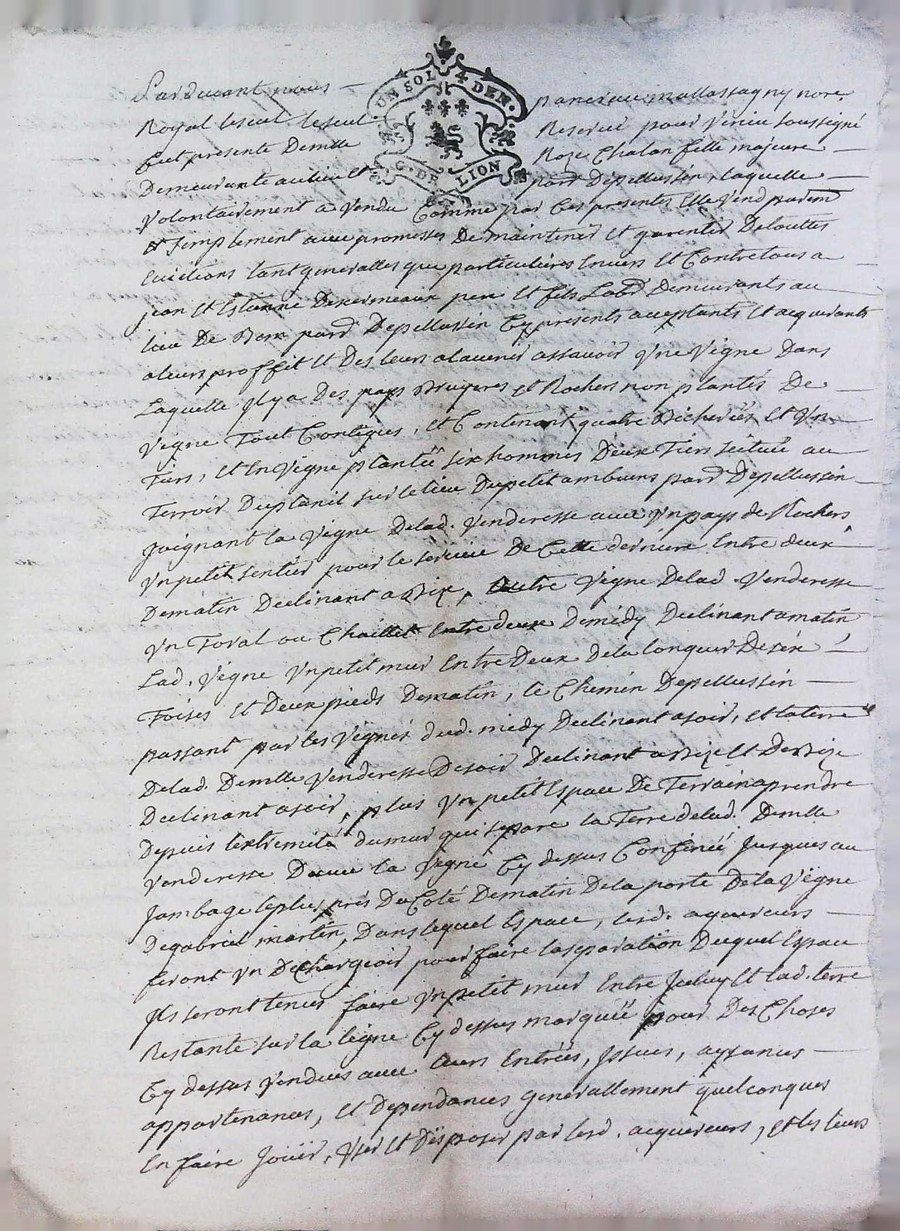 UN SOL 4 DEN.
G. DE LION
Pardevant nous pancrau mallassagny nore
Royal seul Reservé pour Virieu soussigné
fut presente Demlle Roze Chalan fille majeure
Demeurante au lieu et parr Depellussin, laquelle
Volontairement a Vendu Comme par Ces presentes Elle Vend purem
Et simplement avec promesses De maintenir Et garentir De touttes
Evictions tant generalles que particulieres Envers Et Contre tous a
jean Et Estienne Dexermeaux pere Et fils Labr Demeurants au
lieu De parr Depellussin Cy presents acceptants Et acquerants
a leurs proffit Et Des leurs alavenir assavoir Vne Vigne Dans
Laquelle Il y a Des pays Bruyeres et Rochers non plantés De
Vigne Tout Contigus, et Contenant quatre Bicherées Et Vn
Tiers, Et En Vigne plantée six hommes Deux Tiers scituée au
Terroir Duplanil sur le lieu Dupetit ambuens parr Depellussin
Joignant la Vigne Delad. Venderesse avec Vn pays de Rochers
Vn petit sentier pour le service De Cette derniere Entre deux
Dematin Declinant a Bize, Autre Vigne Delad. Venderesse
Vn Toral ou Chaillet Entre deux Demidy Declinant a matin
Lad. Vigne Vn petit mur Entre Deux De la longueur De six
Toises Et Deux pieds Dematin, le Chemin Depellussin
passant par les Vignes dud. midy Declinant a soir, Et la terre
Delad. Demlle Venderesse De soir Declinant a Bize Et De Bize
Declinant a soir, plus Vn petit Espace De Terrain aprendre
Depuis lextremité du mur qui separe la Terre delad. Demlle
Venderesse Davec la Vigne Cy dessus Confinée Jusques au
Jambage le plus prés Du Coté Dematin De la porte De la Vigne
De gabriel martin, Dans lequel Espace, lesd. aquereurs
feront Vn Dechargeoir pour faire la separation Duquel Espace
Ils seront tenus faire Vn petit mur Entre Iceluy Et lad. terre
Restante sur la ligne Cy dessus marquée pour Des Choses
Cy dessus Vendues avec leurs Entrées, Issues, aysances
appartenances, Et Dependances generallement quelconques
En faire Jouïr, User Et Disposer par lesd. acquereurs, Et les leurs